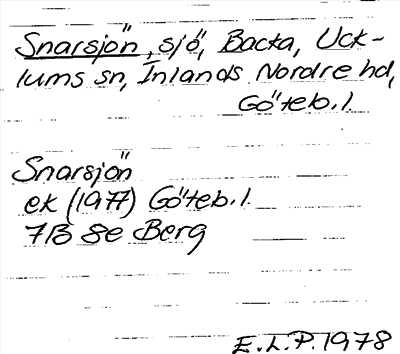 Snarsjön, sjö, Backa, Uck-
lums sn, Inlands Nordre hd,
Göteb. l.
Snarsjön
ek (1977) Göteb. l.
7B 8e Berg
E.L.P. 1978